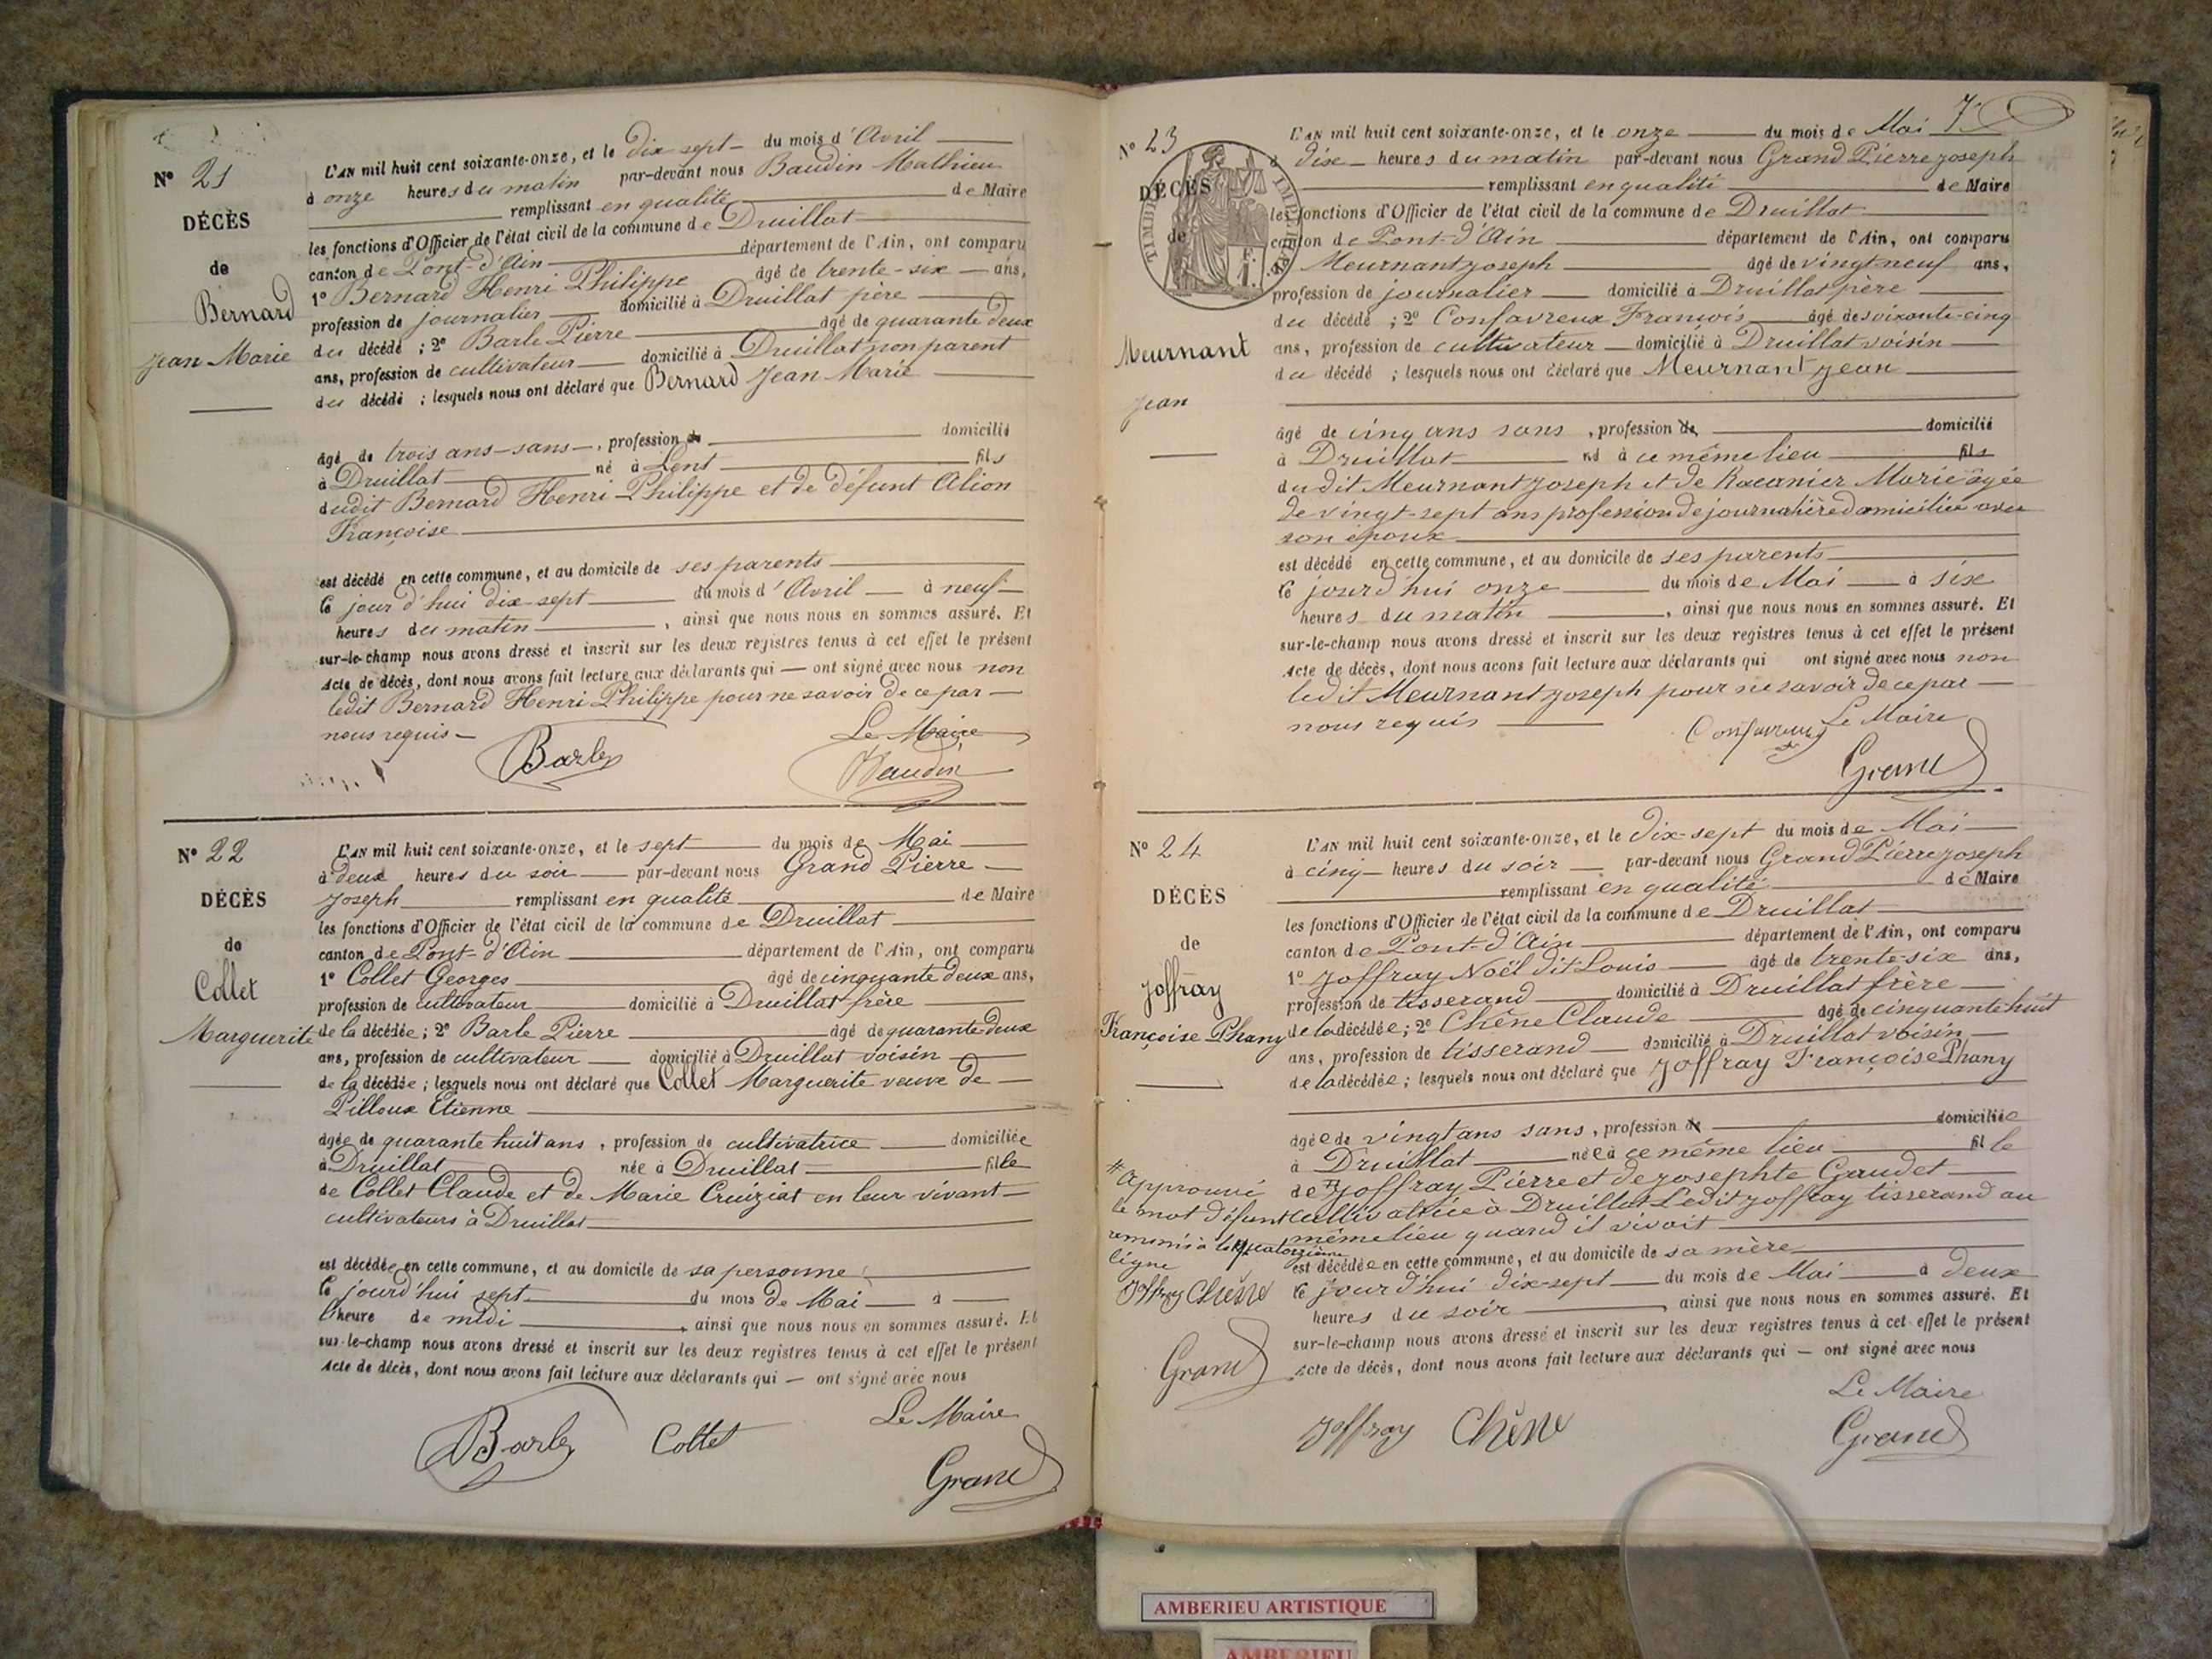 N° 21
DÉCÈS
de
Bernard
Jean Marie
L'AN mil huit cent soixante-onze, et le dix sept du mois d'Avril
à onze heures du matin par-devant nous Baudin Mathieu
remplissant en qualité de Maire
les fonctions d'Officier de l'état civil de la commune de Druillat
canton de Pont-d'Ain département de l'Ain, ont comparu
1° Bernard Henri Philippe âgé de trente-six ans,
profession de journalier domicilié à Druillat père
du décédé ; 2° Barle Pierre âgé de quarante deux
ans, profession de cultivateur domicilié à Druillat non parent
du décédé ; lesquels nous ont déclaré que Bernard Jean Marie
âgé de trois ans sans, profession de domicilié
à Druillat né à Lent fils
dudit Bernard Henri-Philippe et de défunt Alion
Françoise
est décédé en cette commune, et au domicile de ses parents
le jour d'hui dix-sept du mois d'Avril à neuf
heures du matin, ainsi que nous nous en sommes assuré. Et
sur-le-champ nous avons dressé et inscrit sur les deux registres tenus à cet effet le présent
Acte de décès, dont nous avons fait lecture aux déclarants qui — ont signé avec nous non
ledit Bernard Henri Philippe pour ne savoir de ce par
nous requis
Le Maire
Barle Baudin
N° 22
DÉCÈS
de
Collet
Marguerite
L'AN mil huit cent soixante-onze, et le sept du mois de Mai
à deux heures du soir par-devant nous Grand Pierre
Joseph remplissant en qualité de Maire
les fonctions d'Officier de l'état civil de la commune de Druillat
canton de Pont-d'Ain département de l'Ain, ont comparu
1° Collet Georges âgé de cinquante deux ans,
profession de cultivateur domicilié à Druillat frère
de la décédée ; 2° Barle Pierre âgé de quarante-deux
ans, profession de cultivateur domicilié à Druillat voisin
de la décédée ; lesquels nous ont déclaré que Collet Marguerite veuve de
Pilloux Etienne
âgée de quarante huit ans, profession de cultivatrice domiciliée
à Druillat née à Druillat fille
de Collet Claude et de Marie Cruiziat en leur vivant
cultivateurs à Druillat
est décédée en cette commune, et au domicile de sa personne
le jourd'hui sept du mois de Mai à
l'heure de midi, ainsi que nous nous en sommes assuré. Et
sur-le-champ nous avons dressé et inscrit sur les deux registres tenus à cet effet le présent
Acte de décès, dont nous avons fait lecture aux déclarants qui — ont signé avec nous
Le Maire
Barle Collet
Grand
7
N° 23
DÉCÈS
de
Meurnant
Jean
L'AN mil huit cent soixante-onze, et le onze du mois de Mai
à dix heures du matin par-devant nous Grand Pierre Joseph
remplissant en qualité de Maire
les fonctions d'Officier de l'état civil de la commune de Druillat
canton de Pont-d'Ain département de l'Ain, ont comparu
Meurnant Joseph âgé de vingt-neuf ans,
profession de journalier domicilié à Druillat père
du décédé ; 2° Confavreux François âgé de soixante-cinq
ans, profession de cultivateur domicilié à Druillat voisin
du décédé ; lesquels nous ont déclaré que Meurnant Jean
âgé de cinq ans sans, profession de domicilié
à Druillat né à ce même lieu fils
du dit Meurnant Joseph et de Racanier Marie âgée
de vingt-sept ans profession de journalière domiciliée avec
son époux
est décédé en cette commune, et au domicile de ses parents
le jourd'hui onze du mois de Mai à six
heures du matin, ainsi que nous nous en sommes assuré. Et
sur-le-champ nous avons dressé et inscrit sur les deux registres tenus à cet effet le présent
Acte de décès, dont nous avons fait lecture aux déclarants qui ont signé avec nous non
ledit Meurnant Joseph pour ne savoir de ce par
nous requis
Confavreux Le Maire
Grand
N° 24
DÉCÈS
de
Joffray
Françoise Phany
L'AN mil huit cent soixante-onze, et le dix-sept du mois de Mai
à cinq heures du soir par-devant nous Grand Pierre Joseph
remplissant en qualité de Maire
les fonctions d'Officier de l'état civil de la commune de Druillat
canton de Pont-d'Ain département de l'Ain, ont comparu
1° Joffray Noël dit Louis âgé de trente-six ans,
profession de tisserand domicilié à Druillat frère
de la décédée ; 2° Chêne Claude âgé de cinquante huit
ans, profession de tisserand domicilié à Druillat voisin
de la décédée ; lesquels nous ont déclaré que Joffray Françoise Phany
âgée de vingt ans sans, profession de domiciliée
à Druillat née à ce même lieu fille
de # Joffray Pierre et de Josephte Gaudet
cultivatrice à Druillat Ledit Joffray tisserand au
même lieu quand il vivait
est décédée en cette commune, et au domicile de sa mère
le jour d'hui dix-sept du mois de Mai à deux
heures du soir, ainsi que nous nous en sommes assuré. Et
sur-le-champ nous avons dressé et inscrit sur les deux registres tenus à cet effet le présent
Acte de décès, dont nous avons fait lecture aux déclarants qui — ont signé avec nous
Le Maire
Joffray Chêne Grand
# Approuvé
le mot défunt
à la quatorzième
ligne
Joffray Chêne
Grand
AMBERIEU ARTISTIQUE
AMBERIEU